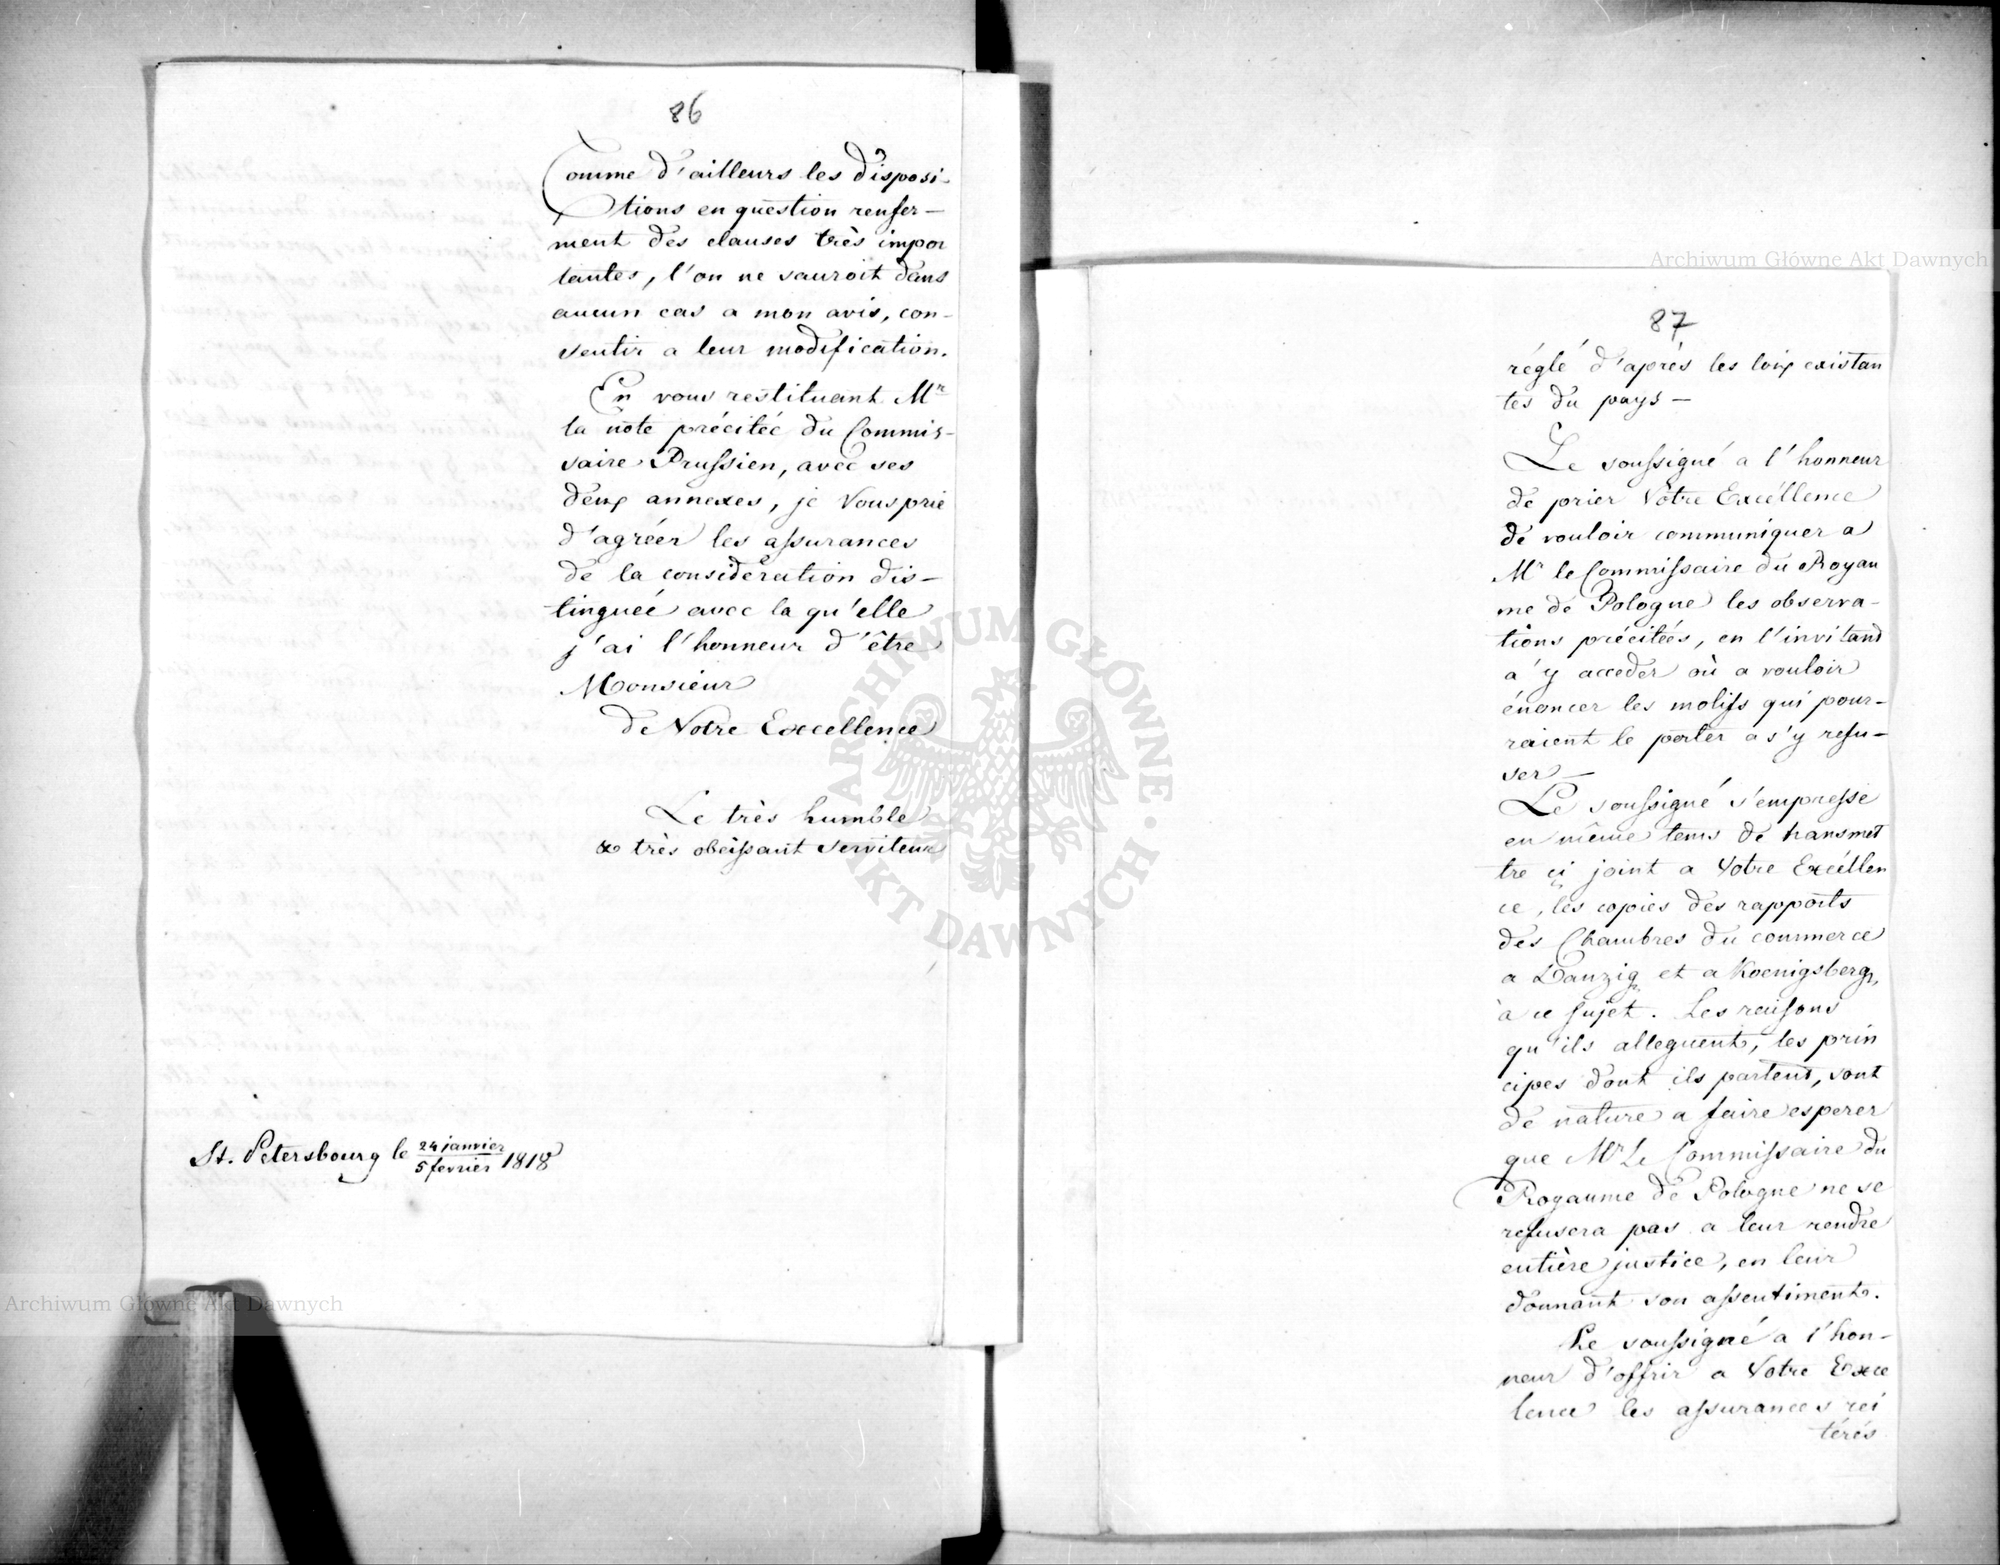 86
Comme d'ailleurs les disposi-
tions en question renfer-
ment des clauses très impor
tantes, l'on ne sauroit dans
aucun cas a mon avis, con-
sentir a leur modification.
En vous restituant Mr
la note précitée du Commis-
saire Prussien, avec ses
deux annexes, je Vous prie
d'agréer les assurances
de la consideration dis-
tinguée avec la qu'elle
j'ai l'honneur d'être
Monsieur
de Votre Excellence
Le très humble
& très obeissant serviteur
St. Petersbourg le 24 janvier / 5 fevrier 1818
87
réglé d'après les loix existan
tes du pays —
Le soussigné a l'honneur
de prier Votre Excéllence
de vouloir communiquer a
Mr le Commissaire du Royau
me de Pologne les observa-
tions précitées, en l'invitand
a'y acceder où a vouloir
énoncer les motifs qui pour-
raient le porter a s'y refu-
ser —
Le soussigné s'empresse
en même tems de transmet
tre ci joint a Votre Excéllen
ce, les copies des rapports
des Chambres du commerce
a Danzig et a Koenigsberg,
à ce sujet. Les raisons
qu'ils alleguent, les prin
cipes dont ils partent, sont
de nature a faire esperer
que Mr Le Commissaire du
Royaume de Pologne ne se
refusera pas a leur rendre
entière justice, en leur
donnant son assentiment.
Le soussigné a l'hon-
neur d'offrir a Votre Exce
lence les assurances réi
térés
Archiwum Główne Akt Dawnych
Archiwum Główne Akt Dawnych
ARCHIWUM GŁÓWNE AKT DAWNYCH